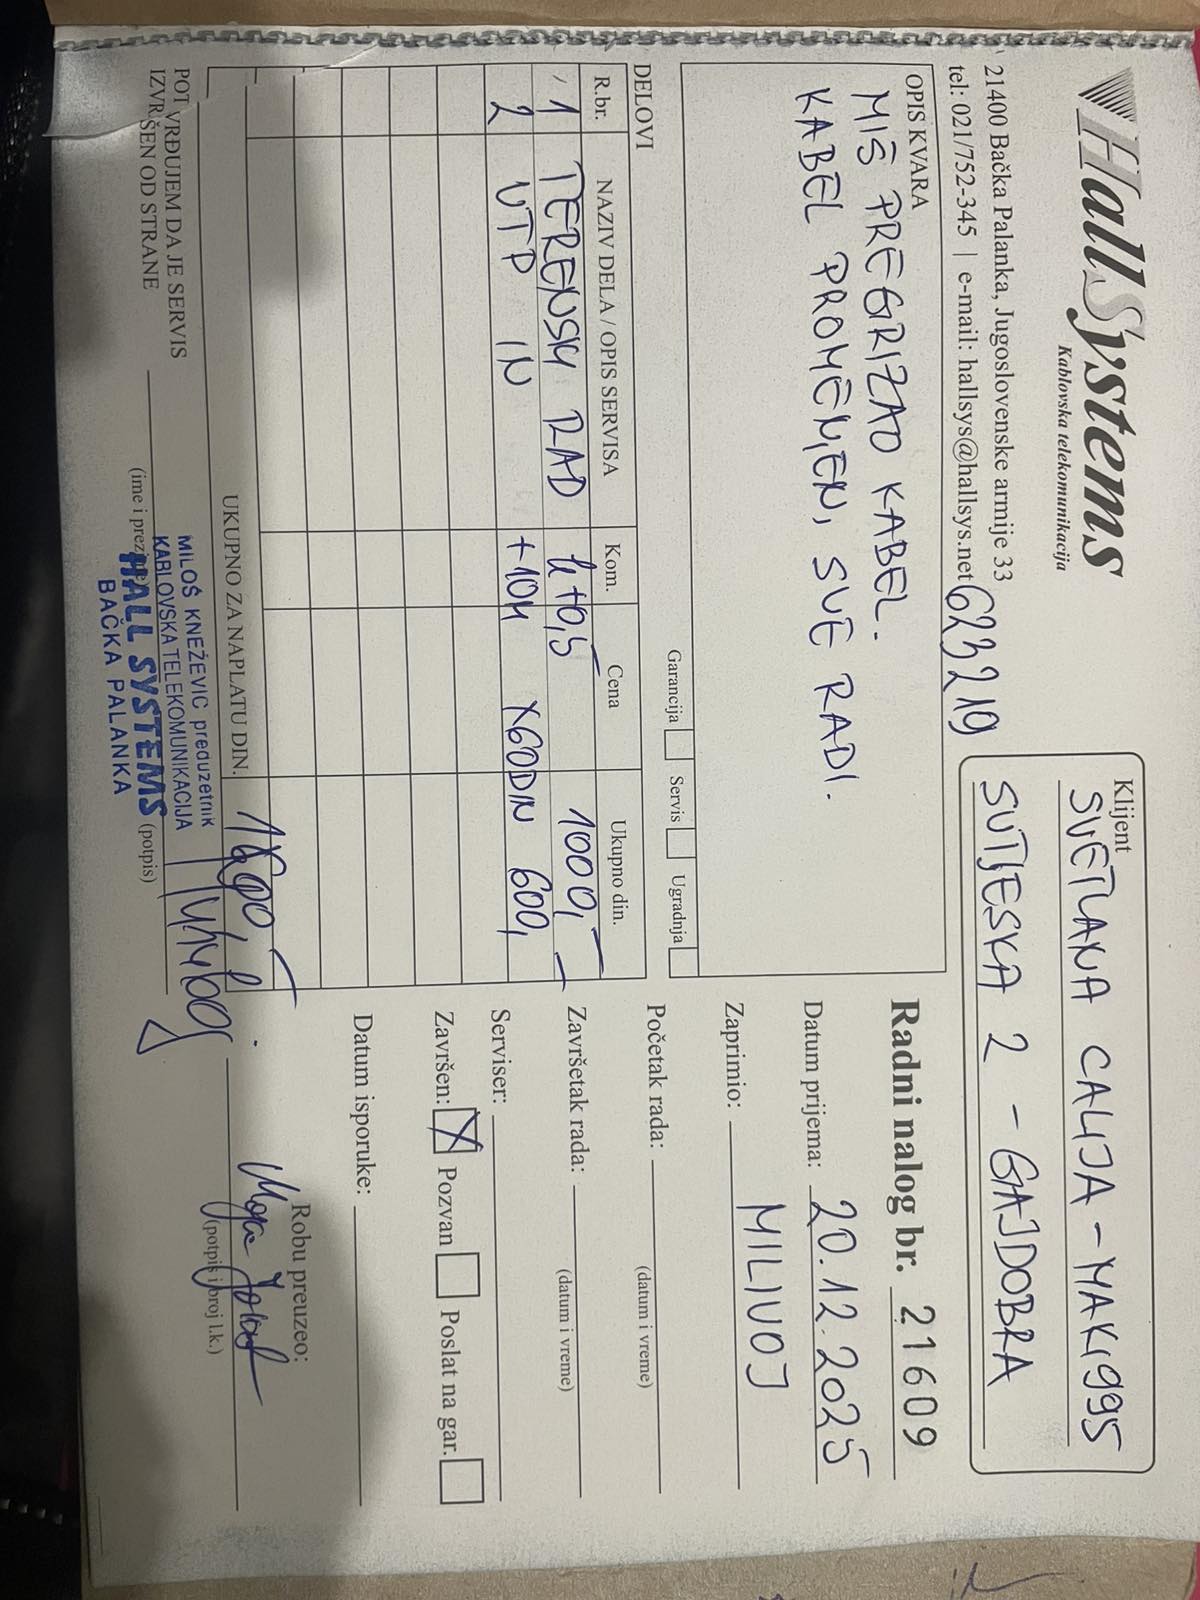 HallSystems
Kablovska telekomunikacija
21400 Bačka Palanka, Jugoslovenske armije 33
tel: 021/752-345 | e-mail: hallsys@hallsys.net
623219
Klijent
SVETLANA CALIJA - MAKI995
SUTJESKA 2 - GAJDOBRA
OPIS KVARA
MIŠ PREGRIZAO KABEL.
KABEL PROMENJEN, SVE RADI.
Radni nalog br. 21609
Datum prijema: 20.12.2025
Zaprimio: MILIVOJ
Garancija Servis Ugradnja
DELOVI
R.br. NAZIV DELA / OPIS SERVISA Kom. Cena Ukupno din.
1 TERENSKI RAD 1000,-
2 UTP IN x60DIN 600,-
UKUPNO ZA NAPLATU DIN. 1600,-
Početak rada:
(datum i vreme)
Završetak rada:
(datum i vreme)
Serviser:
Završen: X Pozvan Poslat na gar.
Datum isporuke:
Robu preuzeo:
(potpis i broj l.k.)
POTVRĐUJEM DA JE SERVIS
IZVRŠEN OD STRANE
(ime i prezime) (potpis)
MILOŠ KNEŽEVIĆ preduzetnik
KABLOVSKA TELEKOMUNIKACIJA
HALL SYSTEMS
BAČKA PALANKA